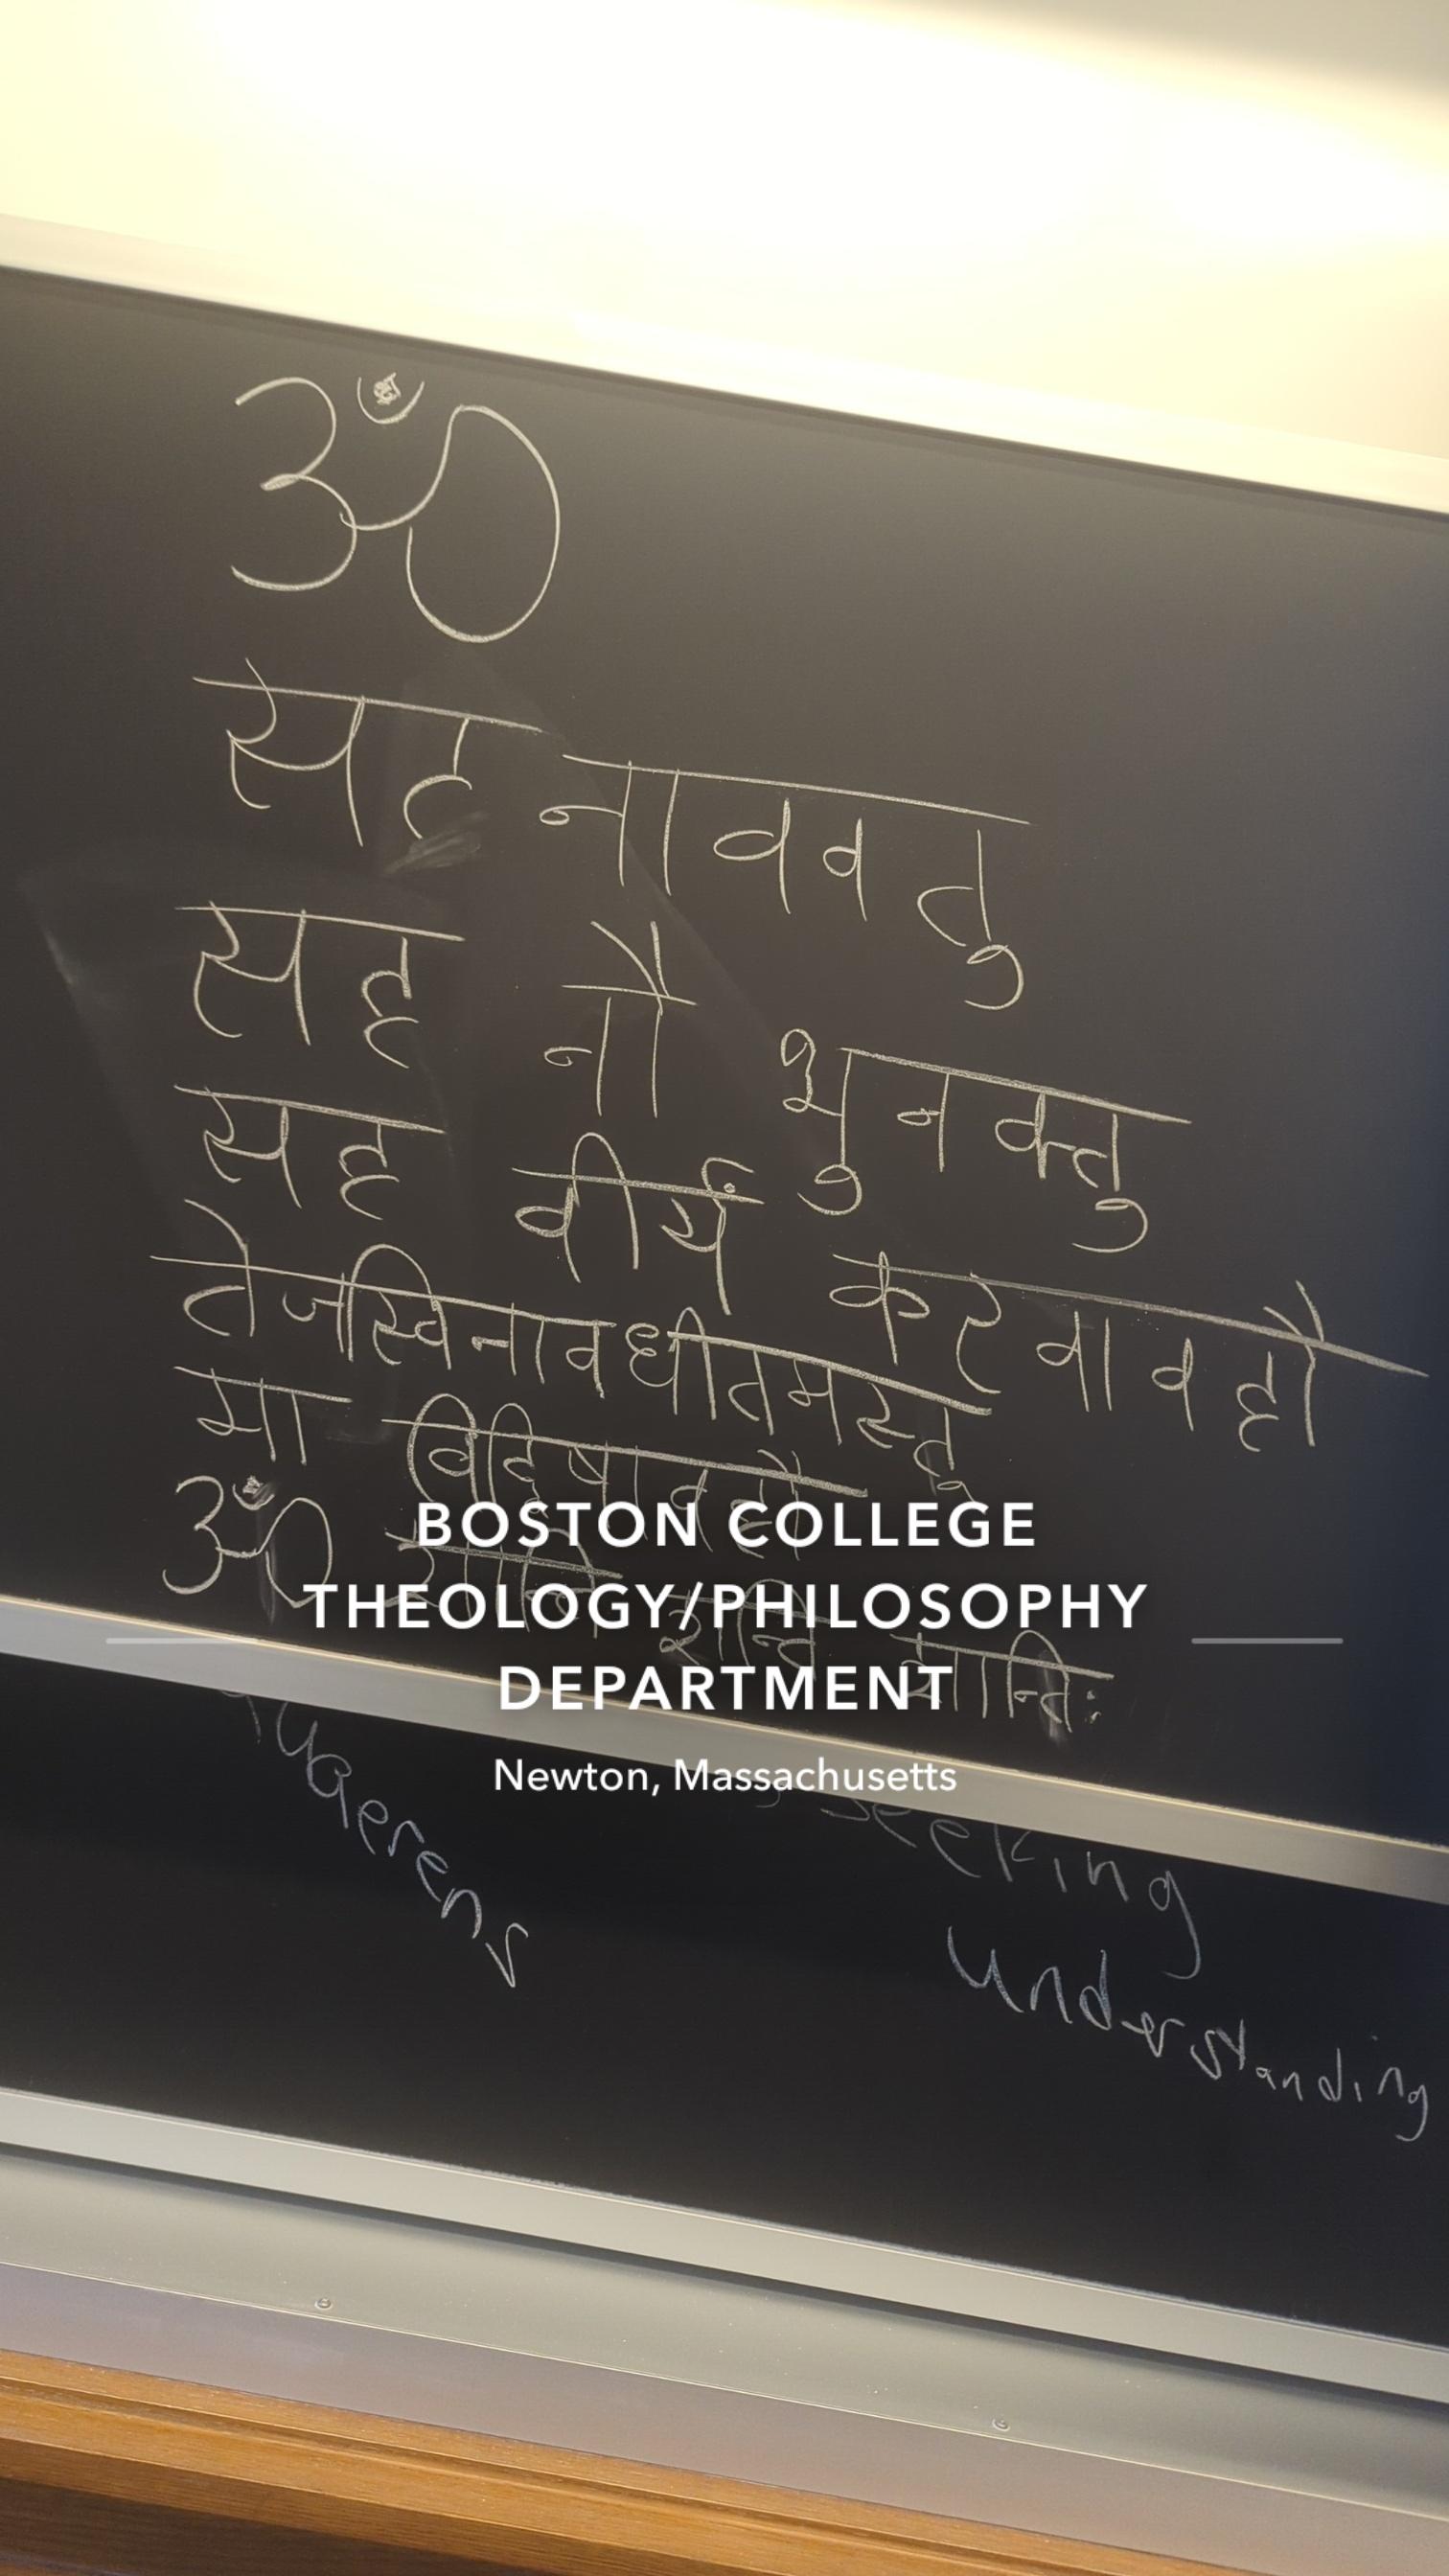 ॐ
सह नाववतु
सह नौ भुनक्तु
सह वीर्यं करवावहै
तेजस्विनावधीतमस्तु
मा विद्विषावहै
ॐ शान्ति शान्ति शान्तिः
BOSTON COLLEGE
THEOLOGY/PHILOSOPHY
DEPARTMENT
Newton, Massachusetts
seeking
understanding